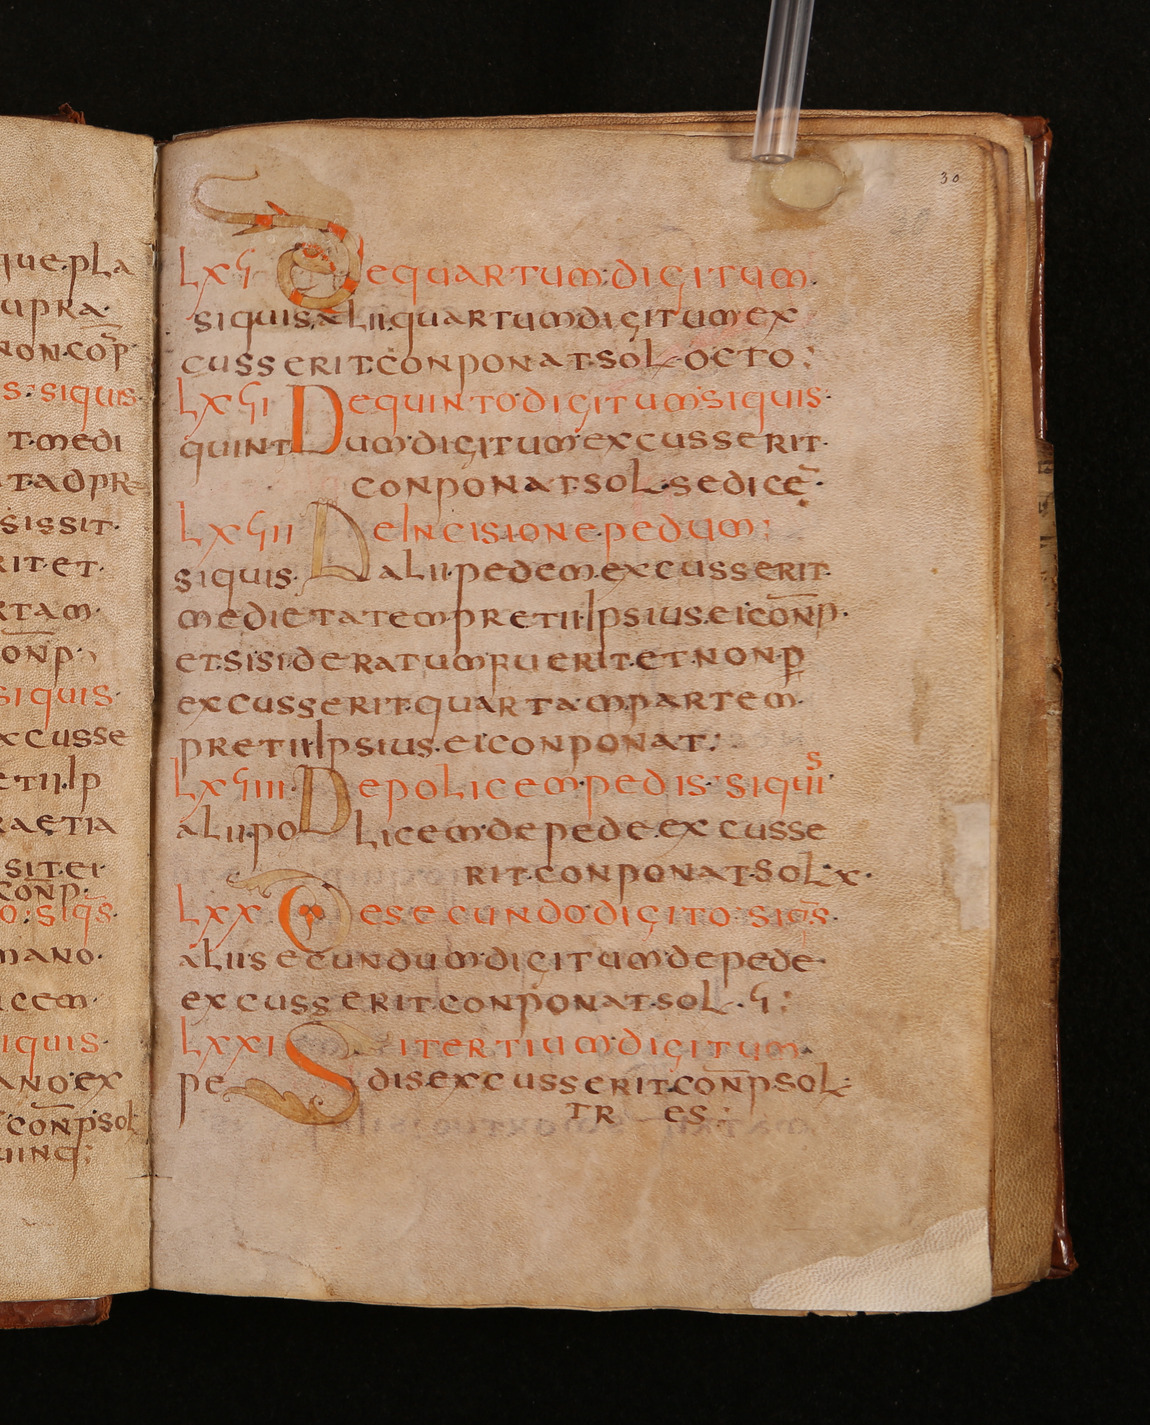 que·pla
upra·
non·co͞p
s: siquis·
t·medi
t·adpr
sissit·
rit·et·
rtam·
on͞p·
siquis·
xcusse
etii·ip
raetia
sit·ei·
con͞p·
o: siq͞s·
mano·
icem·
iquis·
ano·ex
con͞p·sol
uinq;
30
LXVI Dequartum·digitum·
siquis·alii·quartumdigitum·ex
cusserit·conponat·sol·octo:
LXVII Dequinto·digitum·siquis·
quintum·digitum·excusserit·
conponat·sol·sedicē·
LXVIII Deincisione·pedum:
siquis·alii·pedem·excusserit·
medietatem·pretii·ipsius·ei·con͞p·
et·sisideratum·fuerit·et·non·p
excusserit·quartam·partem·
pretii·ipsius·ei·conponat:
LXVIIII Depolicem·pedis: siquis·
alii·policem·de pede·excusse
rit·conponat·sol·x·
LXX Desecundo·digito·siq͞s·
alii·secundum·digitum·depede·
excusserit·conponat·sol·V:
LXXI Sitertium·digitum·
pedis·excusserit·con͞p·sol·
tres: